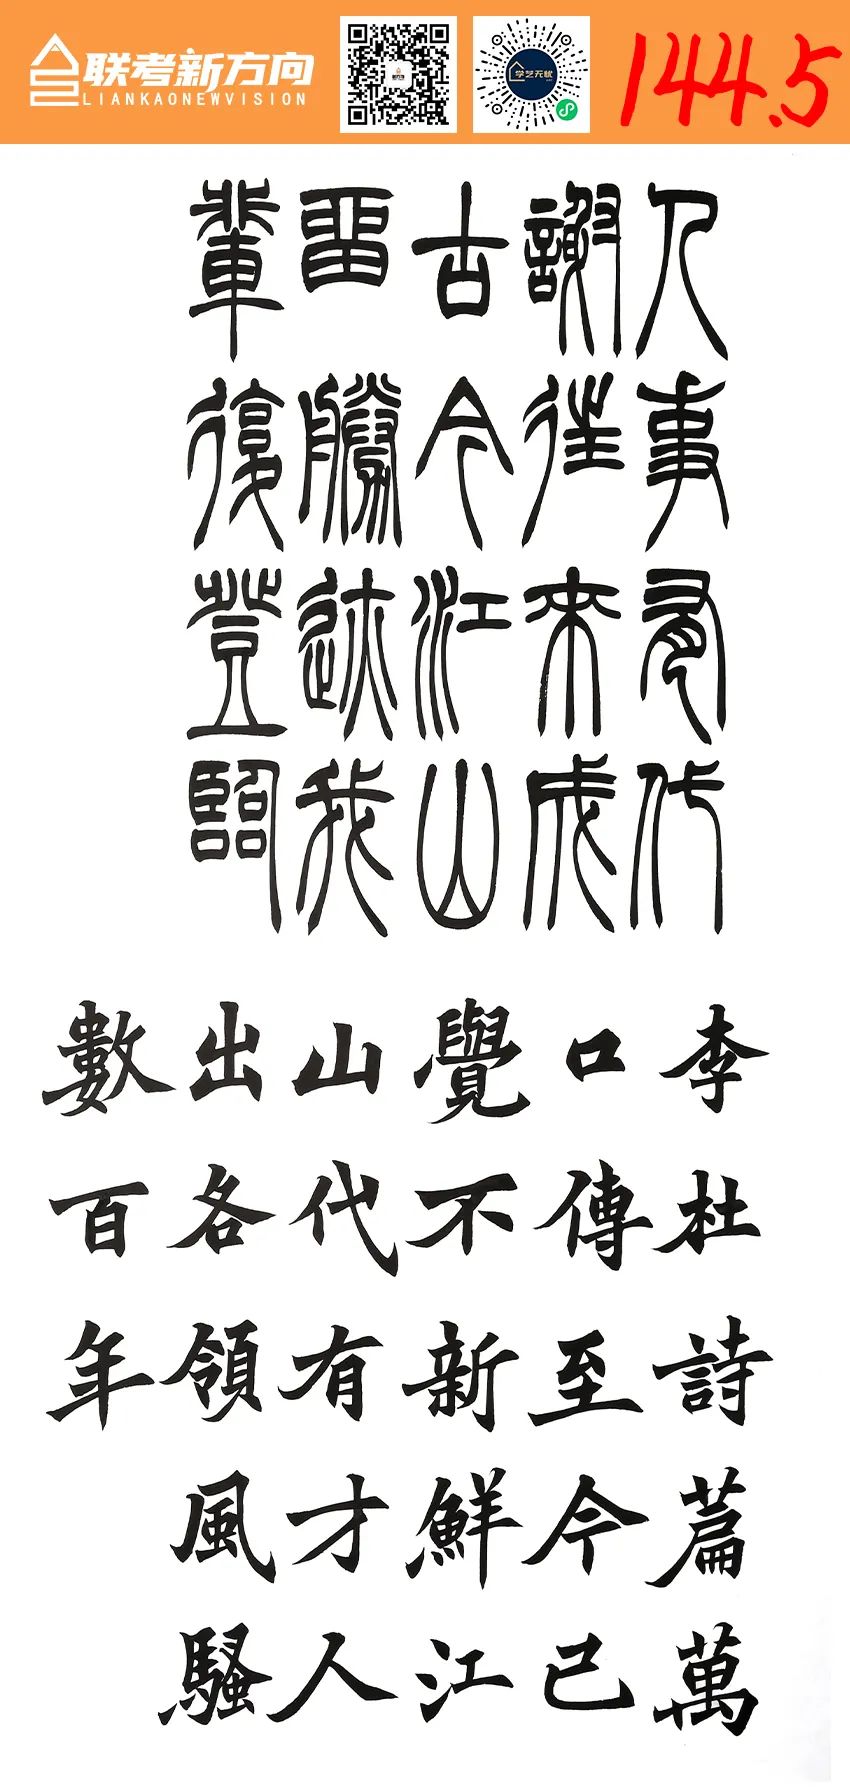 联考新方向
LIANKAONEWVISION
学艺无忧
144.5
人事有代
謝往來成
古今江山
留勝迹我
輩復登臨
李杜詩篇萬
口傳至今已
覺不新鮮江
山代有才人
出各領風騷
數百年